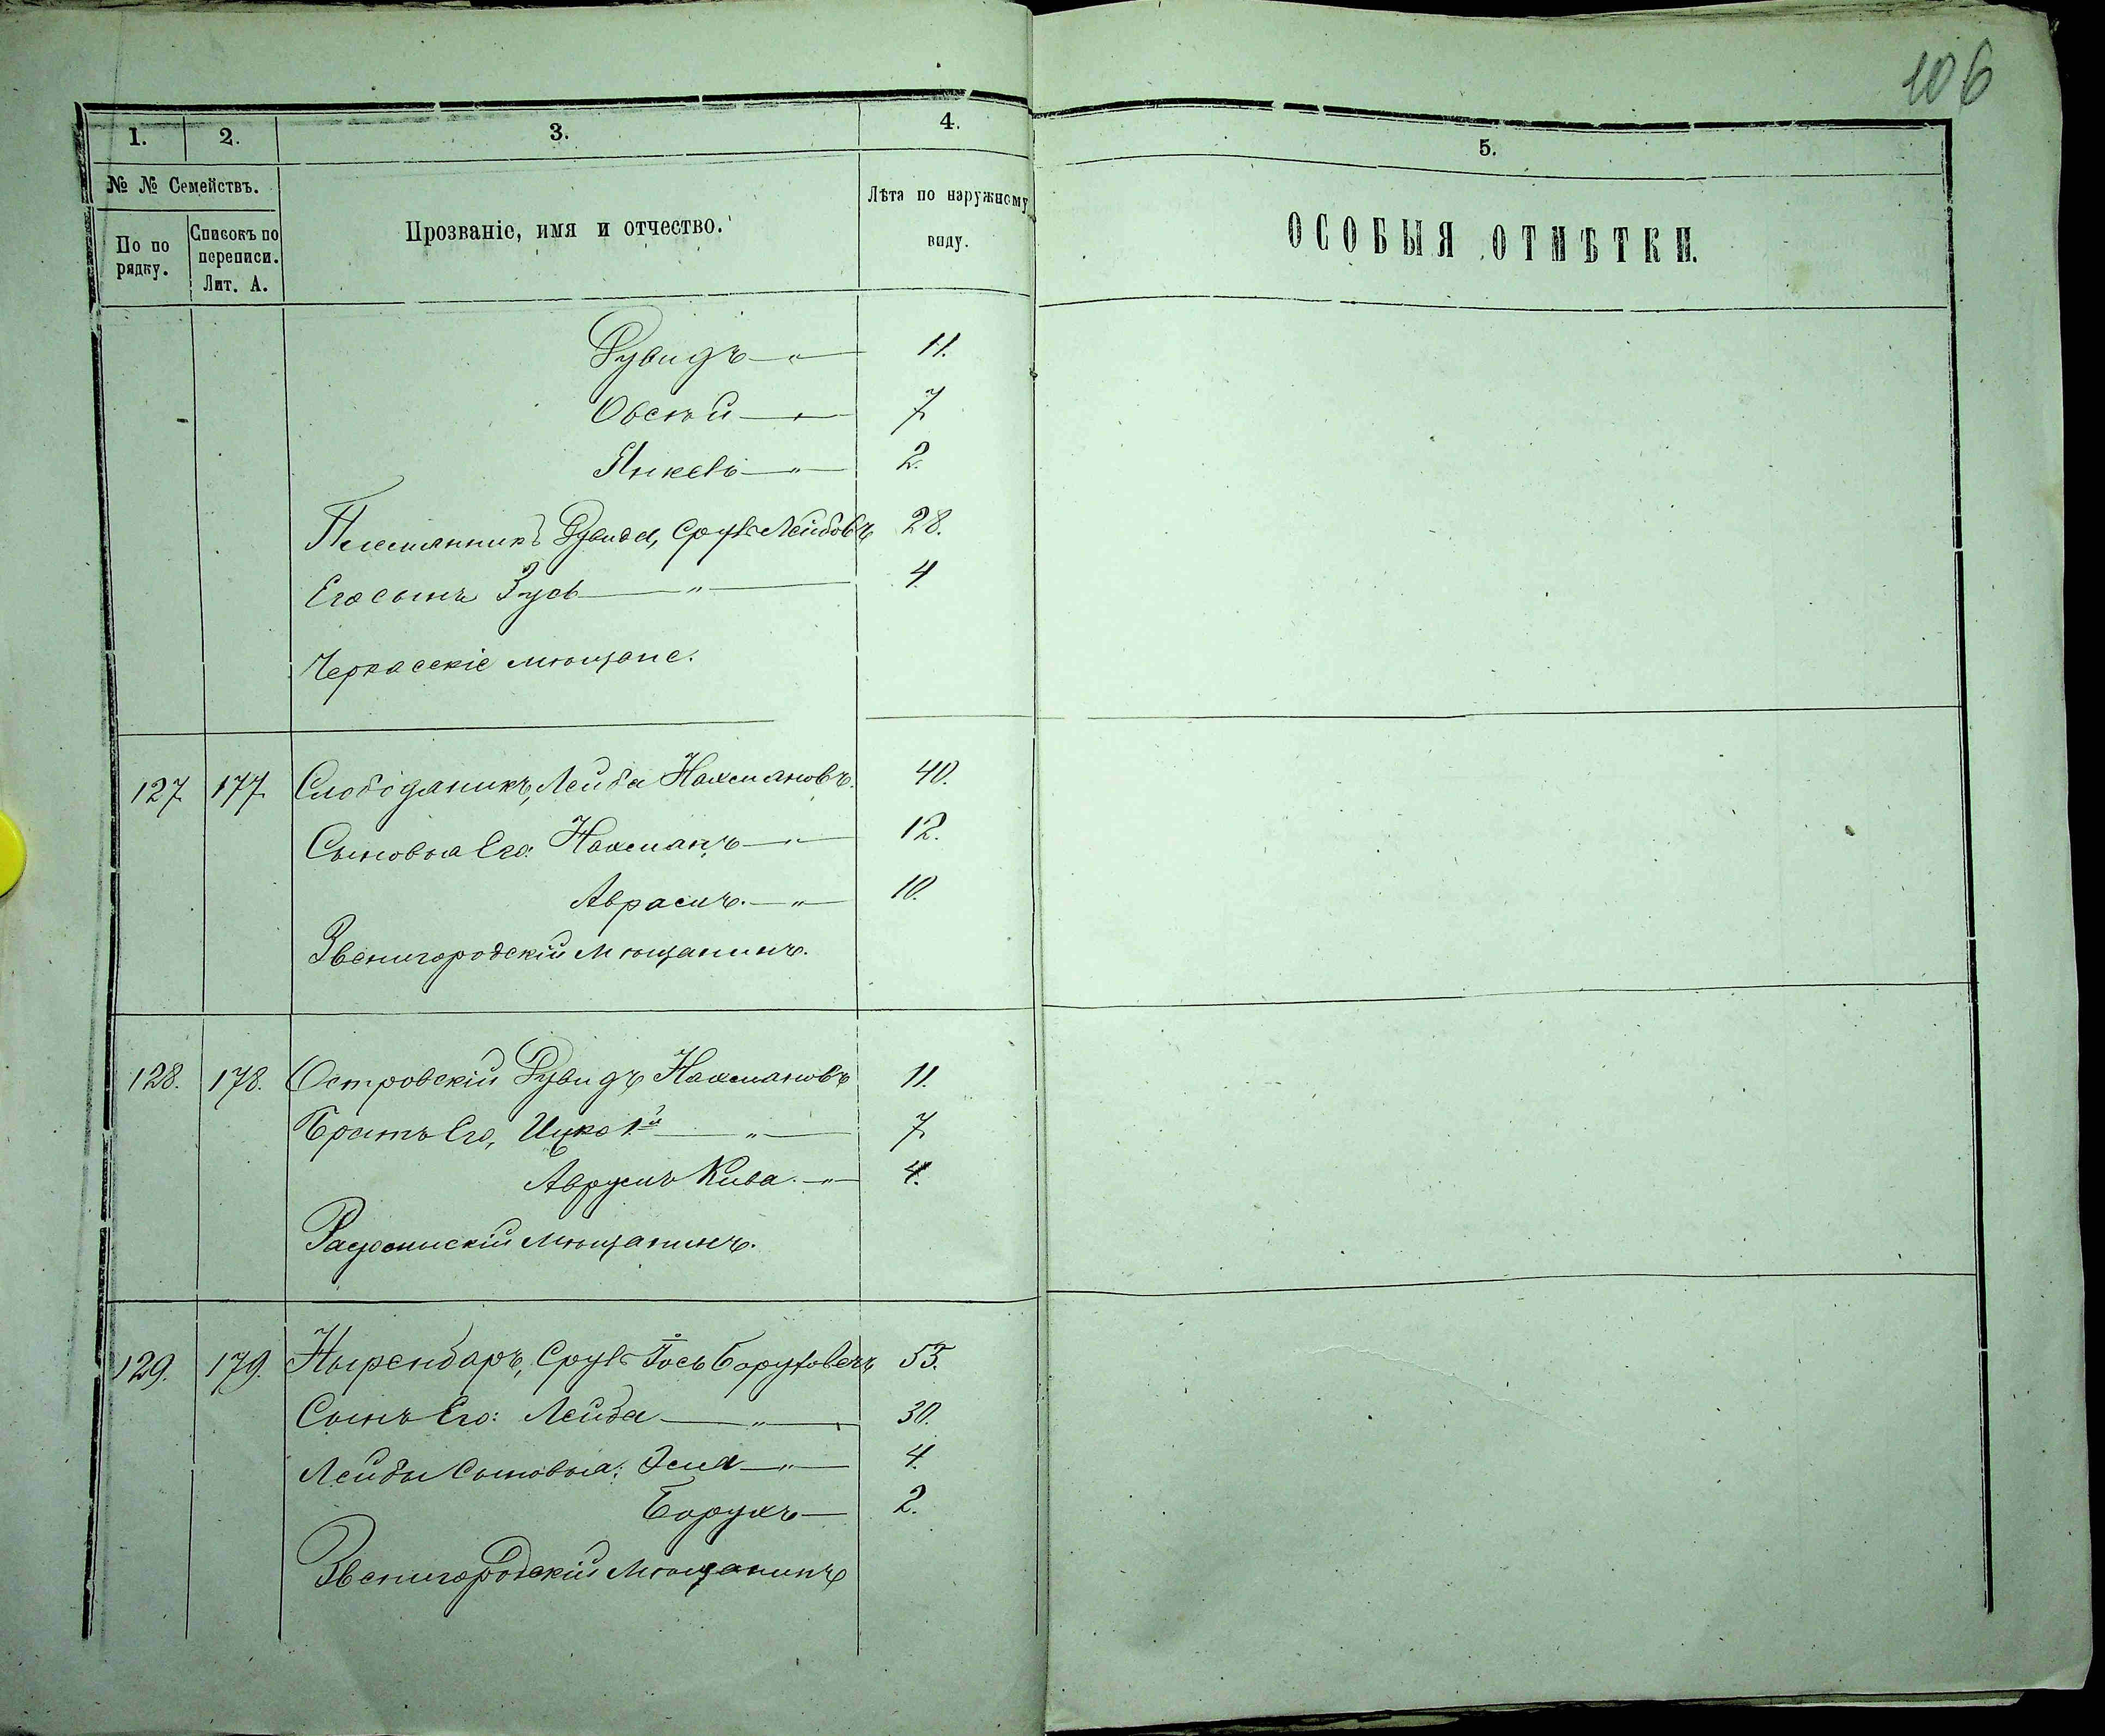 106
1. 2. 3. 4. 5.
№ № Семействъ.
По по рядку.
Списокъ по переписи. Лит. А.
Прозваніе, имя и отчество.
Лѣта по наружному виду.
ОСОБЫЯ ОТМѢТКИ.
Рувидъ — " — 11.
Овсѣй — " — 7
Янкель — " — 2.
Племянникъ Рувида, Сруль Лейбовъ 28.
Его сынъ Зусь — " — 4.
Черкасскіе мѣщане.
127 177 Слободяникъ, Лейба Нахмановъ. 40.
Сыновья Его: Нахманъ — " — 12.
Аврамъ. — " — 10.
Звенигородскій Мѣщанинъ.
128. 178. Островскій Рувидъ Нахмановъ 11.
Братъ Его, Ицко 1й — " — 7
Аврумъ Кива. — " — 4.
Мѣщанинъ.
129. 179. Ныренбаръ, Сруль Іось Боруховичъ 55.
Сынъ Его: Лейба — " — 30.
Лейбы Сыновья: — " — 4.
Борухъ — 2.
Звенигородскій Мѣщанинъ